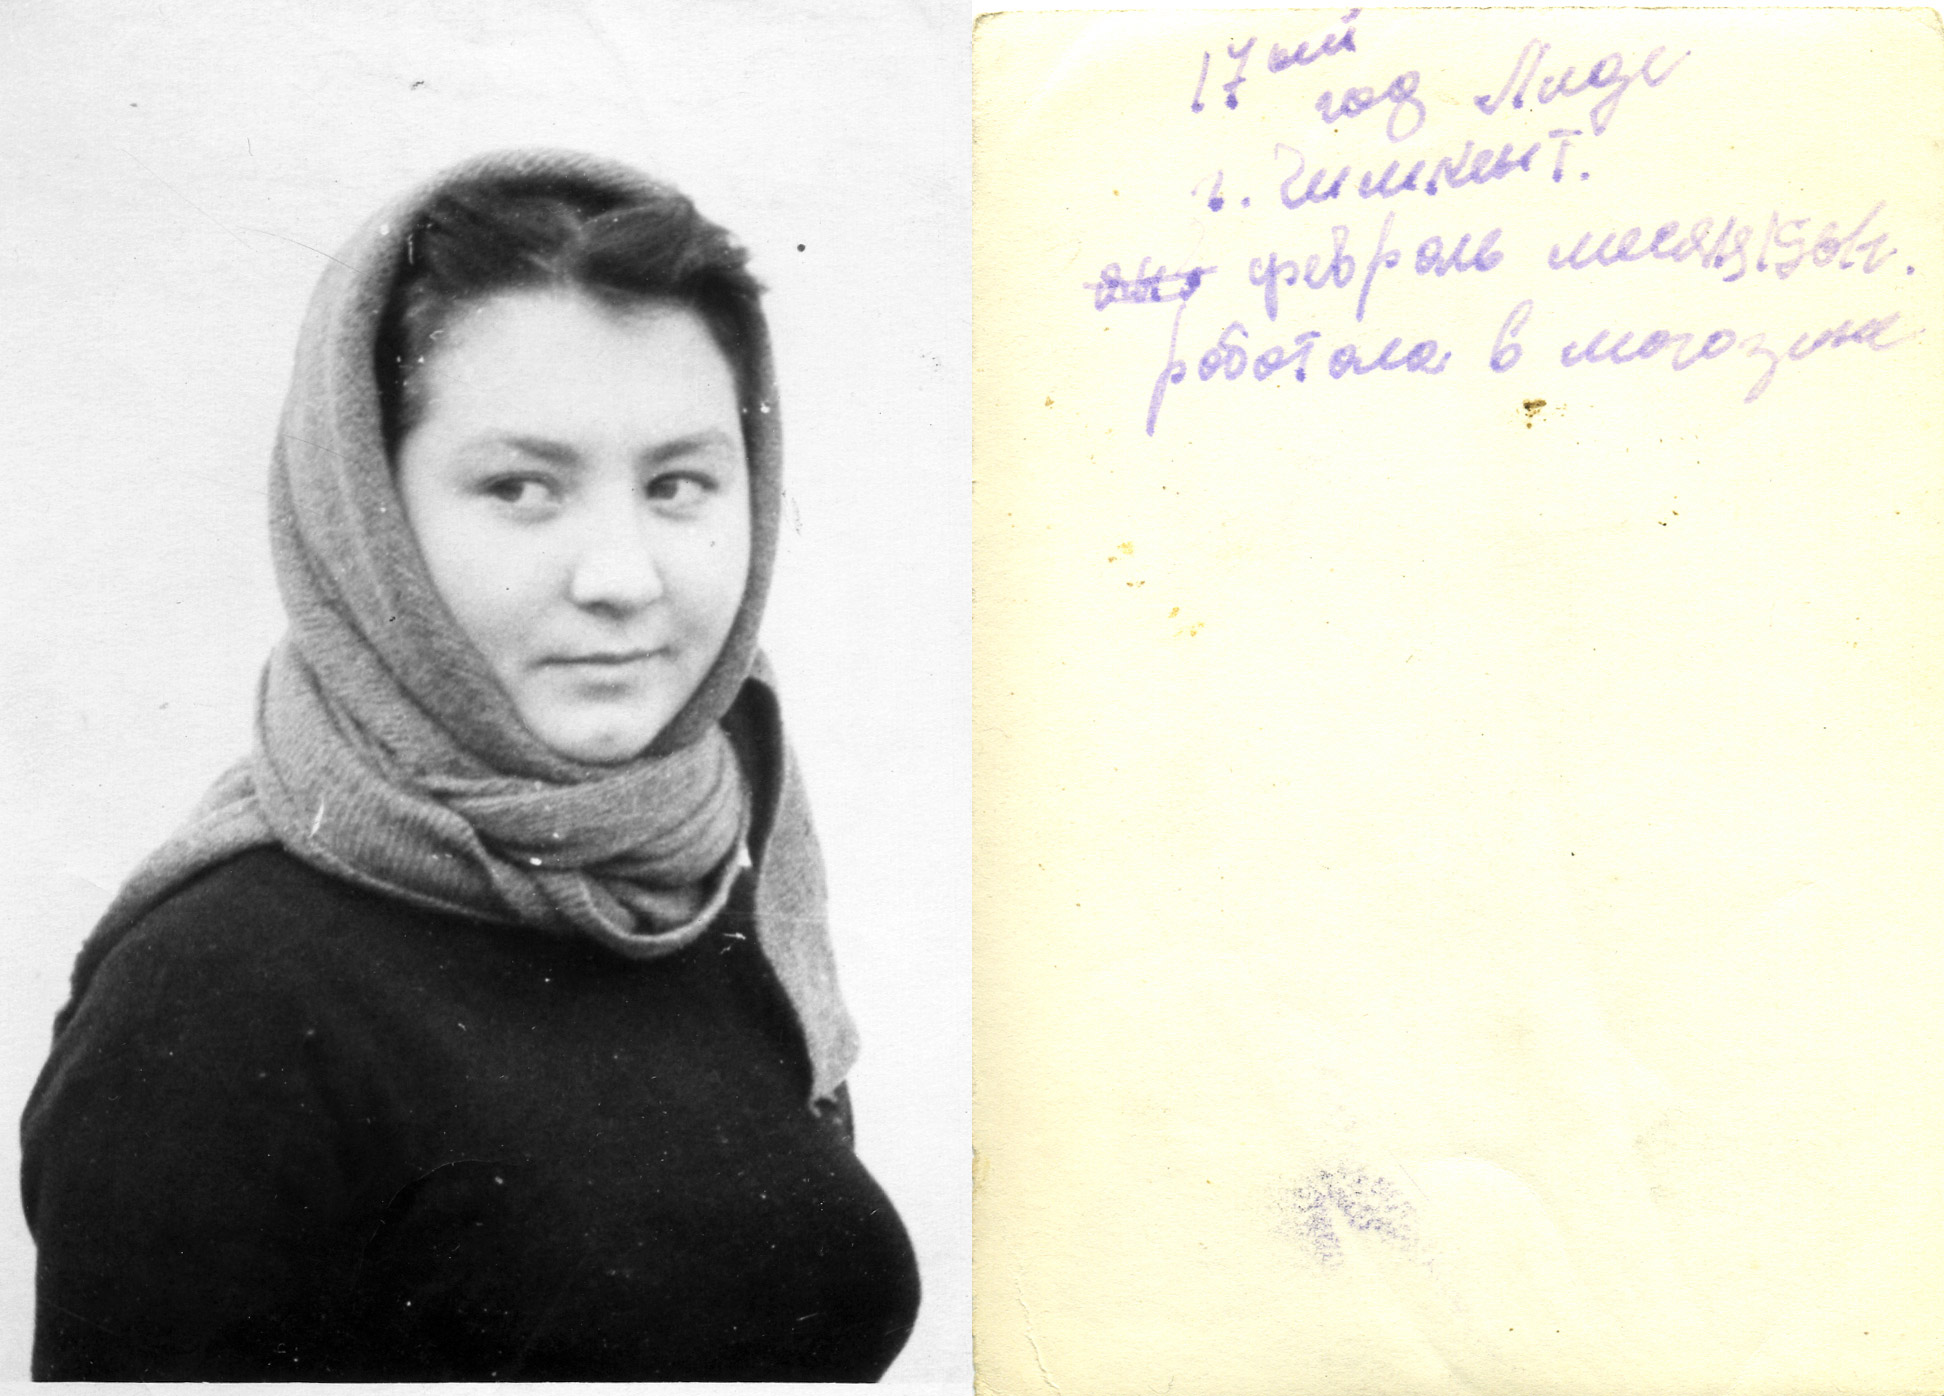 17ый
год Лиде
г. Чимкент.
февраль месяц 1961г.
работала в могозине